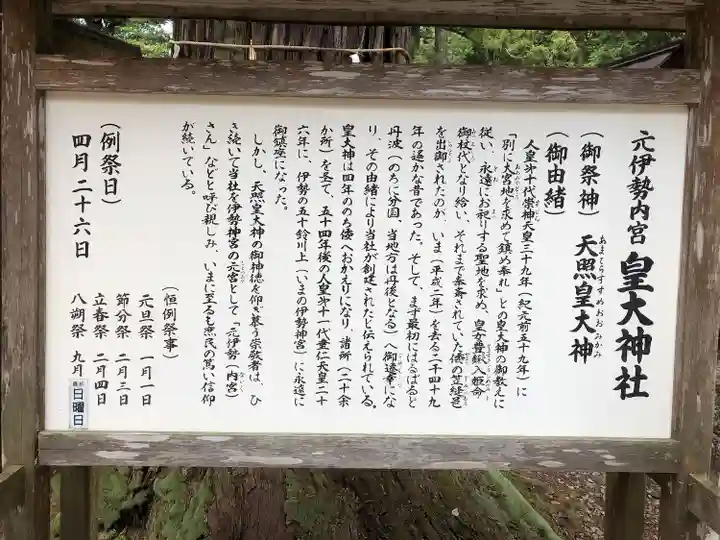 元伊勢内宮 皇大神社
(御祭神) 天照皇大神
あまてらすすめおおみかみ
(御由緒)
人皇第十代崇神天皇三十九年(紀元前五十九年)に
「別に大宮地を求めて鎮め奉れ」との皇大神の御教えに
従い、永遠にお祀りする聖地を求め、皇女豊鋤入姫命
御杖代となり給い、それまで奉斎されていた倭の笠縫邑
を出御されたのが、いま(平成二年)を去る二千四十九
年の遥かな昔であった。そして、まず最初にはるばると
丹波(のちに分国、当地方は丹後となる)へ御遠幸にな
り、その由緒により当社が創建されたと伝えられている。
皇大神は四年ののち倭へおかえりになり、諸所(二十余
か所)を経て、五十四年後の人皇第十一代垂仁天皇二十
六年に、伊勢の五十鈴川上(いまの伊勢神宮)に永遠に
御鎮座になった。
しかし、天照皇大神の御神徳を仰ぎ慕う崇敬者は、ひ
き続いて当社を伊勢神宮の元宮として「元伊勢(内宮)
さん」などと呼び親しみ、いまに至るも庶民の篤い信仰
が続いている。
(恒例祭事)
元旦祭 一月一日
節分祭 二月三日
立春祭 二月四日
八湖祭 九月
日曜日
(例祭日)
四月二十六日